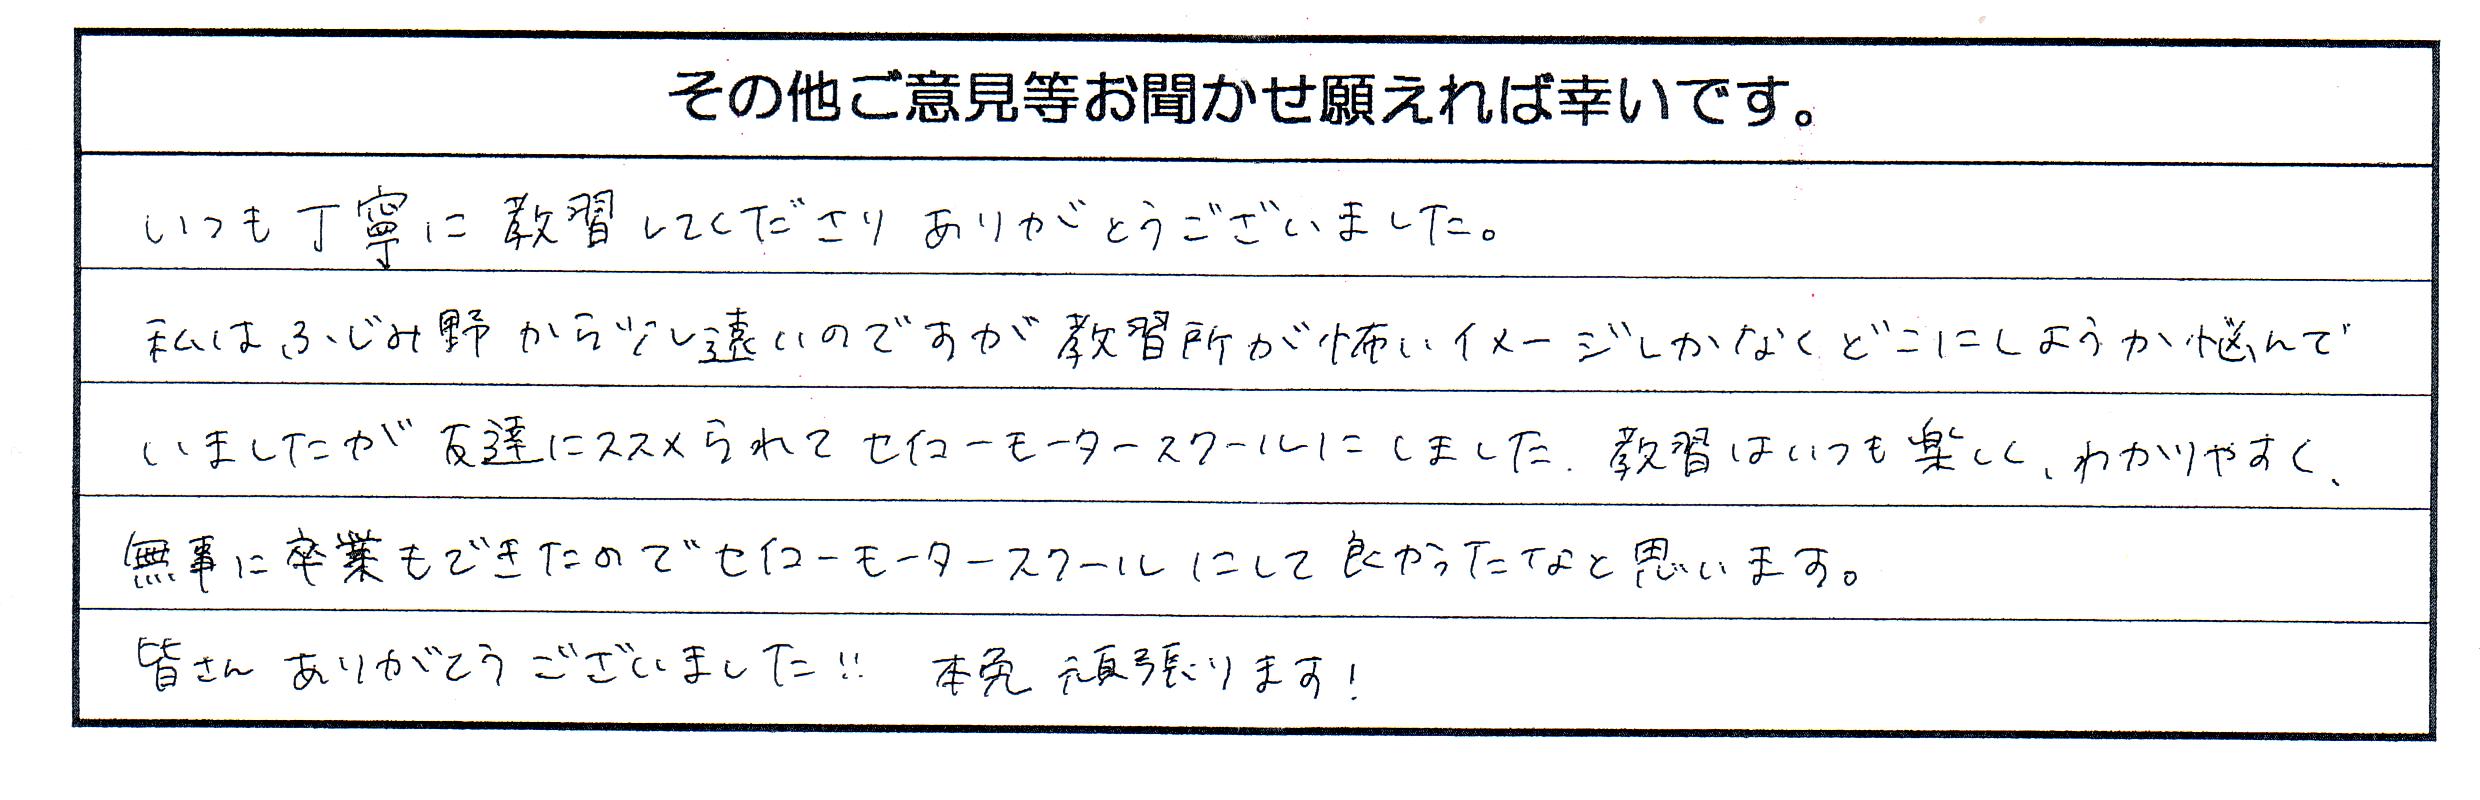 その他ご意見等お聞かせ願えれば幸いです。
いつも丁寧に教習してくださり ありがとうございました。
私はふじみ野から少し遠いのですが教習所が怖いイメージしかなくどこにしようか悩んで
いましたが友達にススメられてセイコーモータースクールにしました. 教習はいつも楽しく、わかりやすく、
無事に卒業もできたのでセイコーモータースクールにして良かったなと思います。
皆さんありがとうございました!! 本免頑張ります!